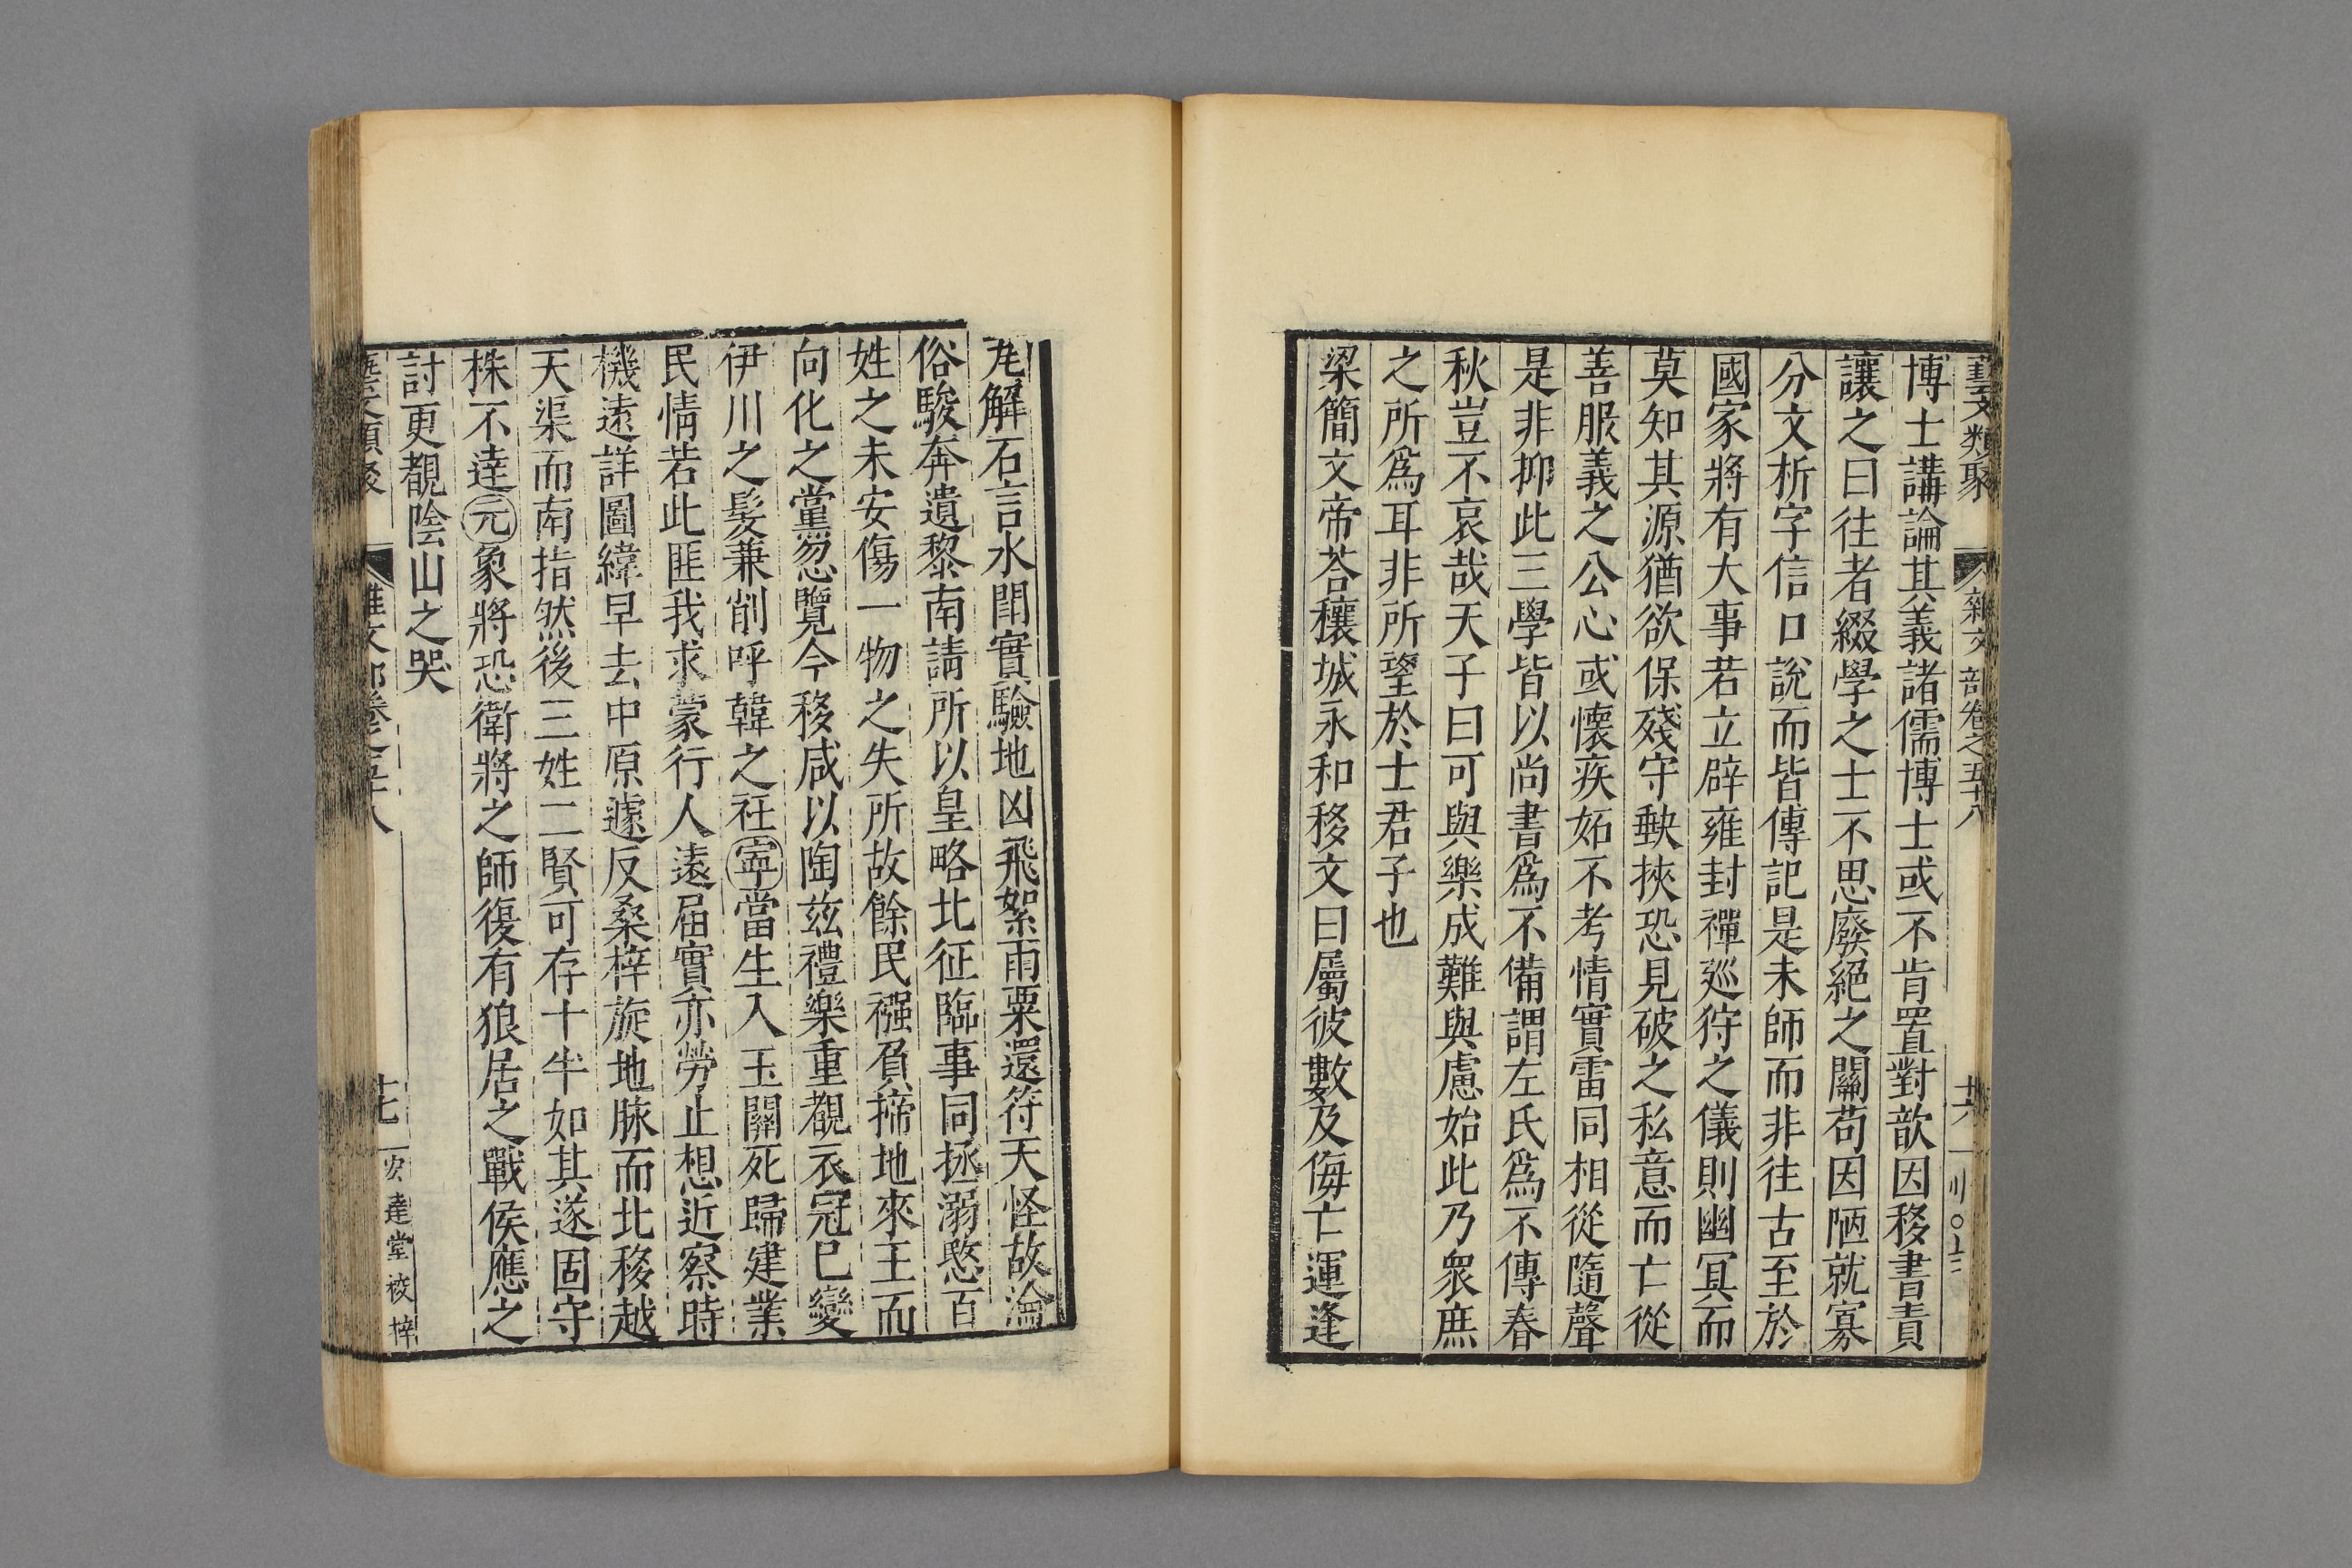 藝文類聚 雜文部卷之五十八 廿六
博士講論其義諸儒博士或不肯置對歆因移書責
讓之曰往者綴學之士不思廢絕之闕苟因陋就寡
分文析字信口說而皆傳記是末師而非往古至於
國家將有大事若立辟雍封禪廵狩之儀則幽冥而
莫知其源猶欲保殘守缺挾恐見破之私意而亡從
善服義之公心或懷疾妬不考情實雷同相從隨聲
是非抑此三學皆以尚書爲不備謂左氏爲不傳春
秋豈不哀哉天子曰可與樂成難與慮始此乃衆庶
之所爲耳非所望於士君子也
梁簡文帝荅穰城永和移文曰屬彼數及侮亡運逢
尨解石言水鬪實驗地凶飛絮雨粟還符天怪故瀹
俗駿奔遺黎南請所以皇略北征臨事同拯溺愍百
姓之未安傷一物之失所故餘民襁負掃地來王而
向化之黨忽覽今移咸以陶兹禮樂重覩衣冠已變
伊川之髮兼削呼韓之衽寧當生入玉關死歸建業
民情若此匪我求蒙行人遠屆實亦勞止想近察時
機遠詳圖緯早去中原遽反桑梓旋地脉而北移越
天渠而南指然後三姓二賢可存十半如其遂固守
株不達元象將恐衛將之師復有狼居之戰侯應之
討更覩陰山之哭
類聚 雜文部卷之五十八 十七 宏達堂校梓